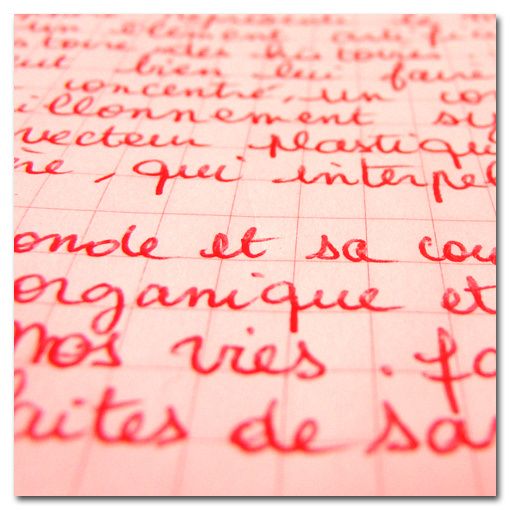 un élément
toire, des histoires
ut bien lui faire
concentré, un co
illonnement sy
vecteur plastiqu
ère, qui interpel
onde et sa cou
organique et
nos vies. fa
faites de sa